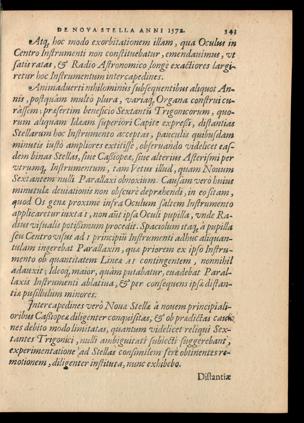 DE NOVA STELLA ANNI 1572. 341
Atq, hoc modo exorbitationem illam, qua Oculus in
Centro Instrumenti non constituebatur, emendavimus, ut
satis ratas, & Radio Astronomico longè exactiores largi-
retur hoc Instrumentum intercapedines.
Animadverti nihilominùs subsequentibus aliquot An-
nis, postquàm multò plura, variaq, Organa construi cu-
râssem; præsertim beneficio Sextantis Trigonicorum, quo-
rum aliquam Ideam superiori Capite expressi, distantias
Stellarum hoc Instrumento acceptas, pauculis quibusdam
minutis iustò ampliores extitisse, observando videlicet eas-
dem binas Stellas, sive Cassiopeæ, sive alterius Asterismi per
utrumq, Instrumentum, tam Vetus illud, quàm Novum
Sextantem nulli Parallaxi obnoxium. Causam verò huius
minutulæ deviationis non obscurè deprehendi, in eo sitam,
quod Os genæ proximè infra Oculum saltem Instrumento
applicaretur iuxta 1, non aut ipsa Oculi pupilla, unde Ra-
dius visualis potissimùm procedit. Spaciolum itaq, à pupilla
seu Centro visus ad 1 principiũ Instrumenti adhuc aliquan-
tulam ingerebat Parallaxin, quæ priorem ex ipso Instru-
mento ob quantitatem Lineæ 21 contingentem, nonnihil
adauxit; Ideoq, maior, quàm putabatur, evadebat Paral-
laxis Instrumenti ablativa, & per consequens ipsæ distan-
tiæ pusillulum minores.
Intercapedines verò Novæ Stellæ à novem principali-
oribus Cassiopeæ diligenter conquisitas, & ob prædictas cautio-
nes debito modo limitatas, quantum videlicet reliqui Sex-
tantes Trigonici, nulli ambiguitati subiecti suggerebant,
experimentatione ad Stellas consimilem ferè obtinentes re-
motionem, diligenter instituta, nunc exhibebo.
Distantiæ